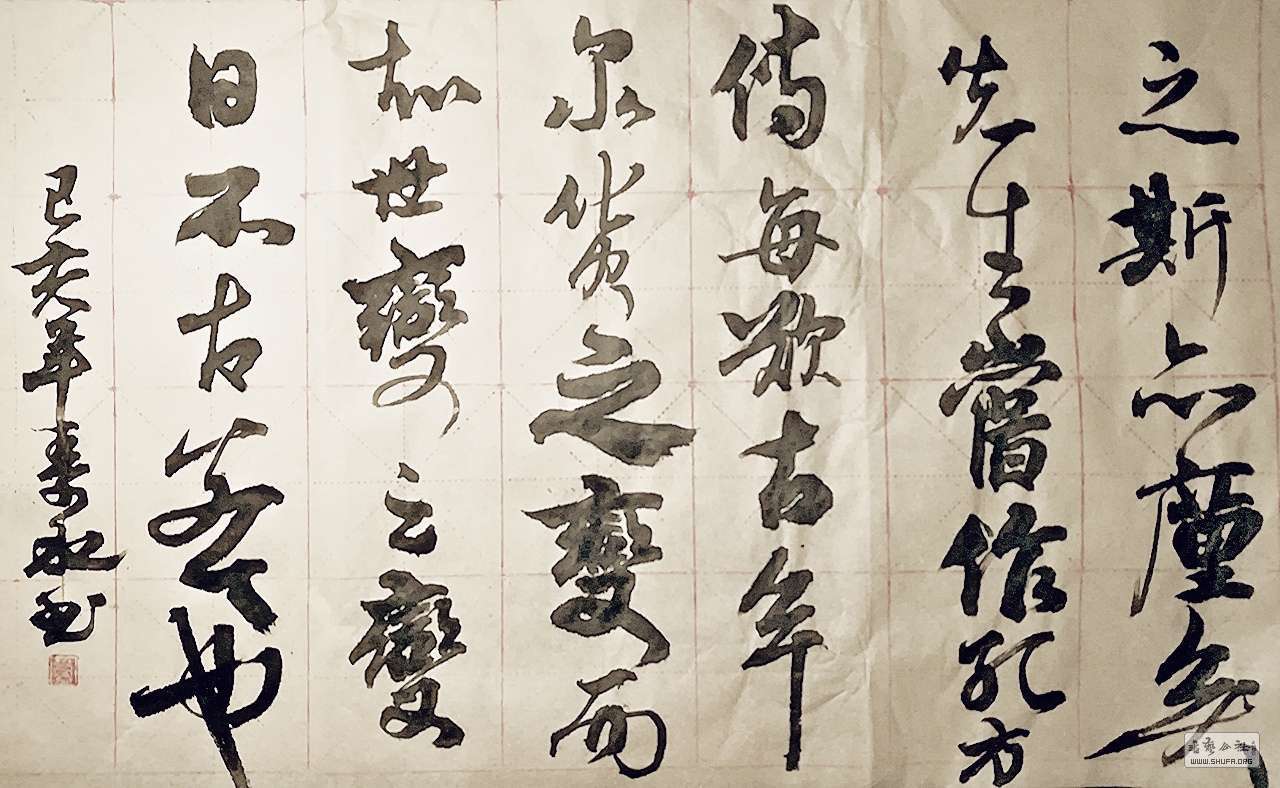 之斯亦廑矣
先生嘗作孔方
傳每歎百年
泉貨之變而
知世變之變
日不古若也
己亥年寿永书
書藝公社
WWW.SHUFA.ORG